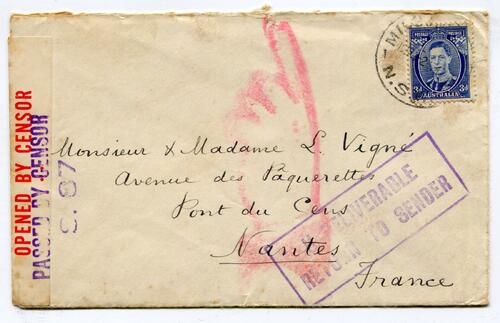 OPENED BY CENSOR
PASSED BY CENSOR
S. 87
N.S.
POSTAGE
3d 3d
AUSTRALIA
Monsieur & Madame L. Vigné
Avenue des Pâquerettes
Pont du Cens
Nantes
France
RETURN TO SENDER